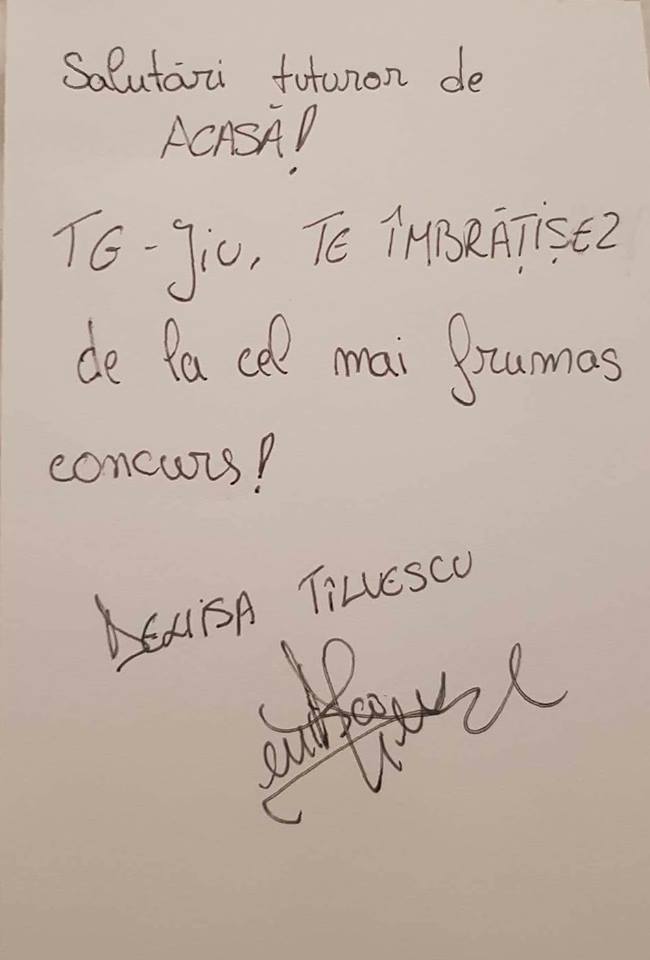 Salutări tuturor de
ACASĂ!
TG-Jiu, TE ÎMBRĂȚIȘEZ
de la cel mai frumos
concurs!
DENISA TÎLVESCU